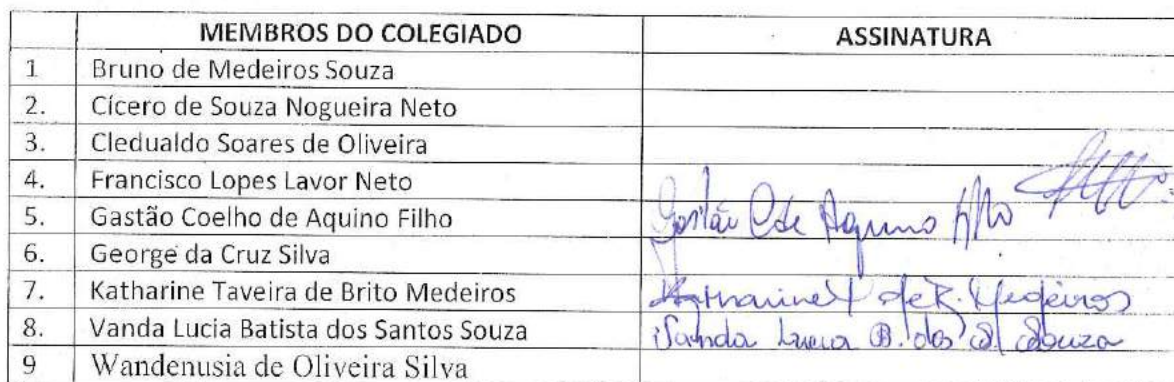 MEMBROS DO COLEGIADO ASSINATURA
1 Bruno de Medeiros Souza
2. Cícero de Souza Nogueira Neto
3. Cledualdo Soares de Oliveira
4. Francisco Lopes Lavor Neto
5. Gastão Coelho de Aquino Filho Gastão C de Aquino
6. George da Cruz Silva
7. Katharine Taveira de Brito Medeiros Katharine T de B. Medeiros
8. Vanda Lucia Batista dos Santos Souza Vanda Lucia B. dos S. Souza
9 Wandenusia de Oliveira Silva